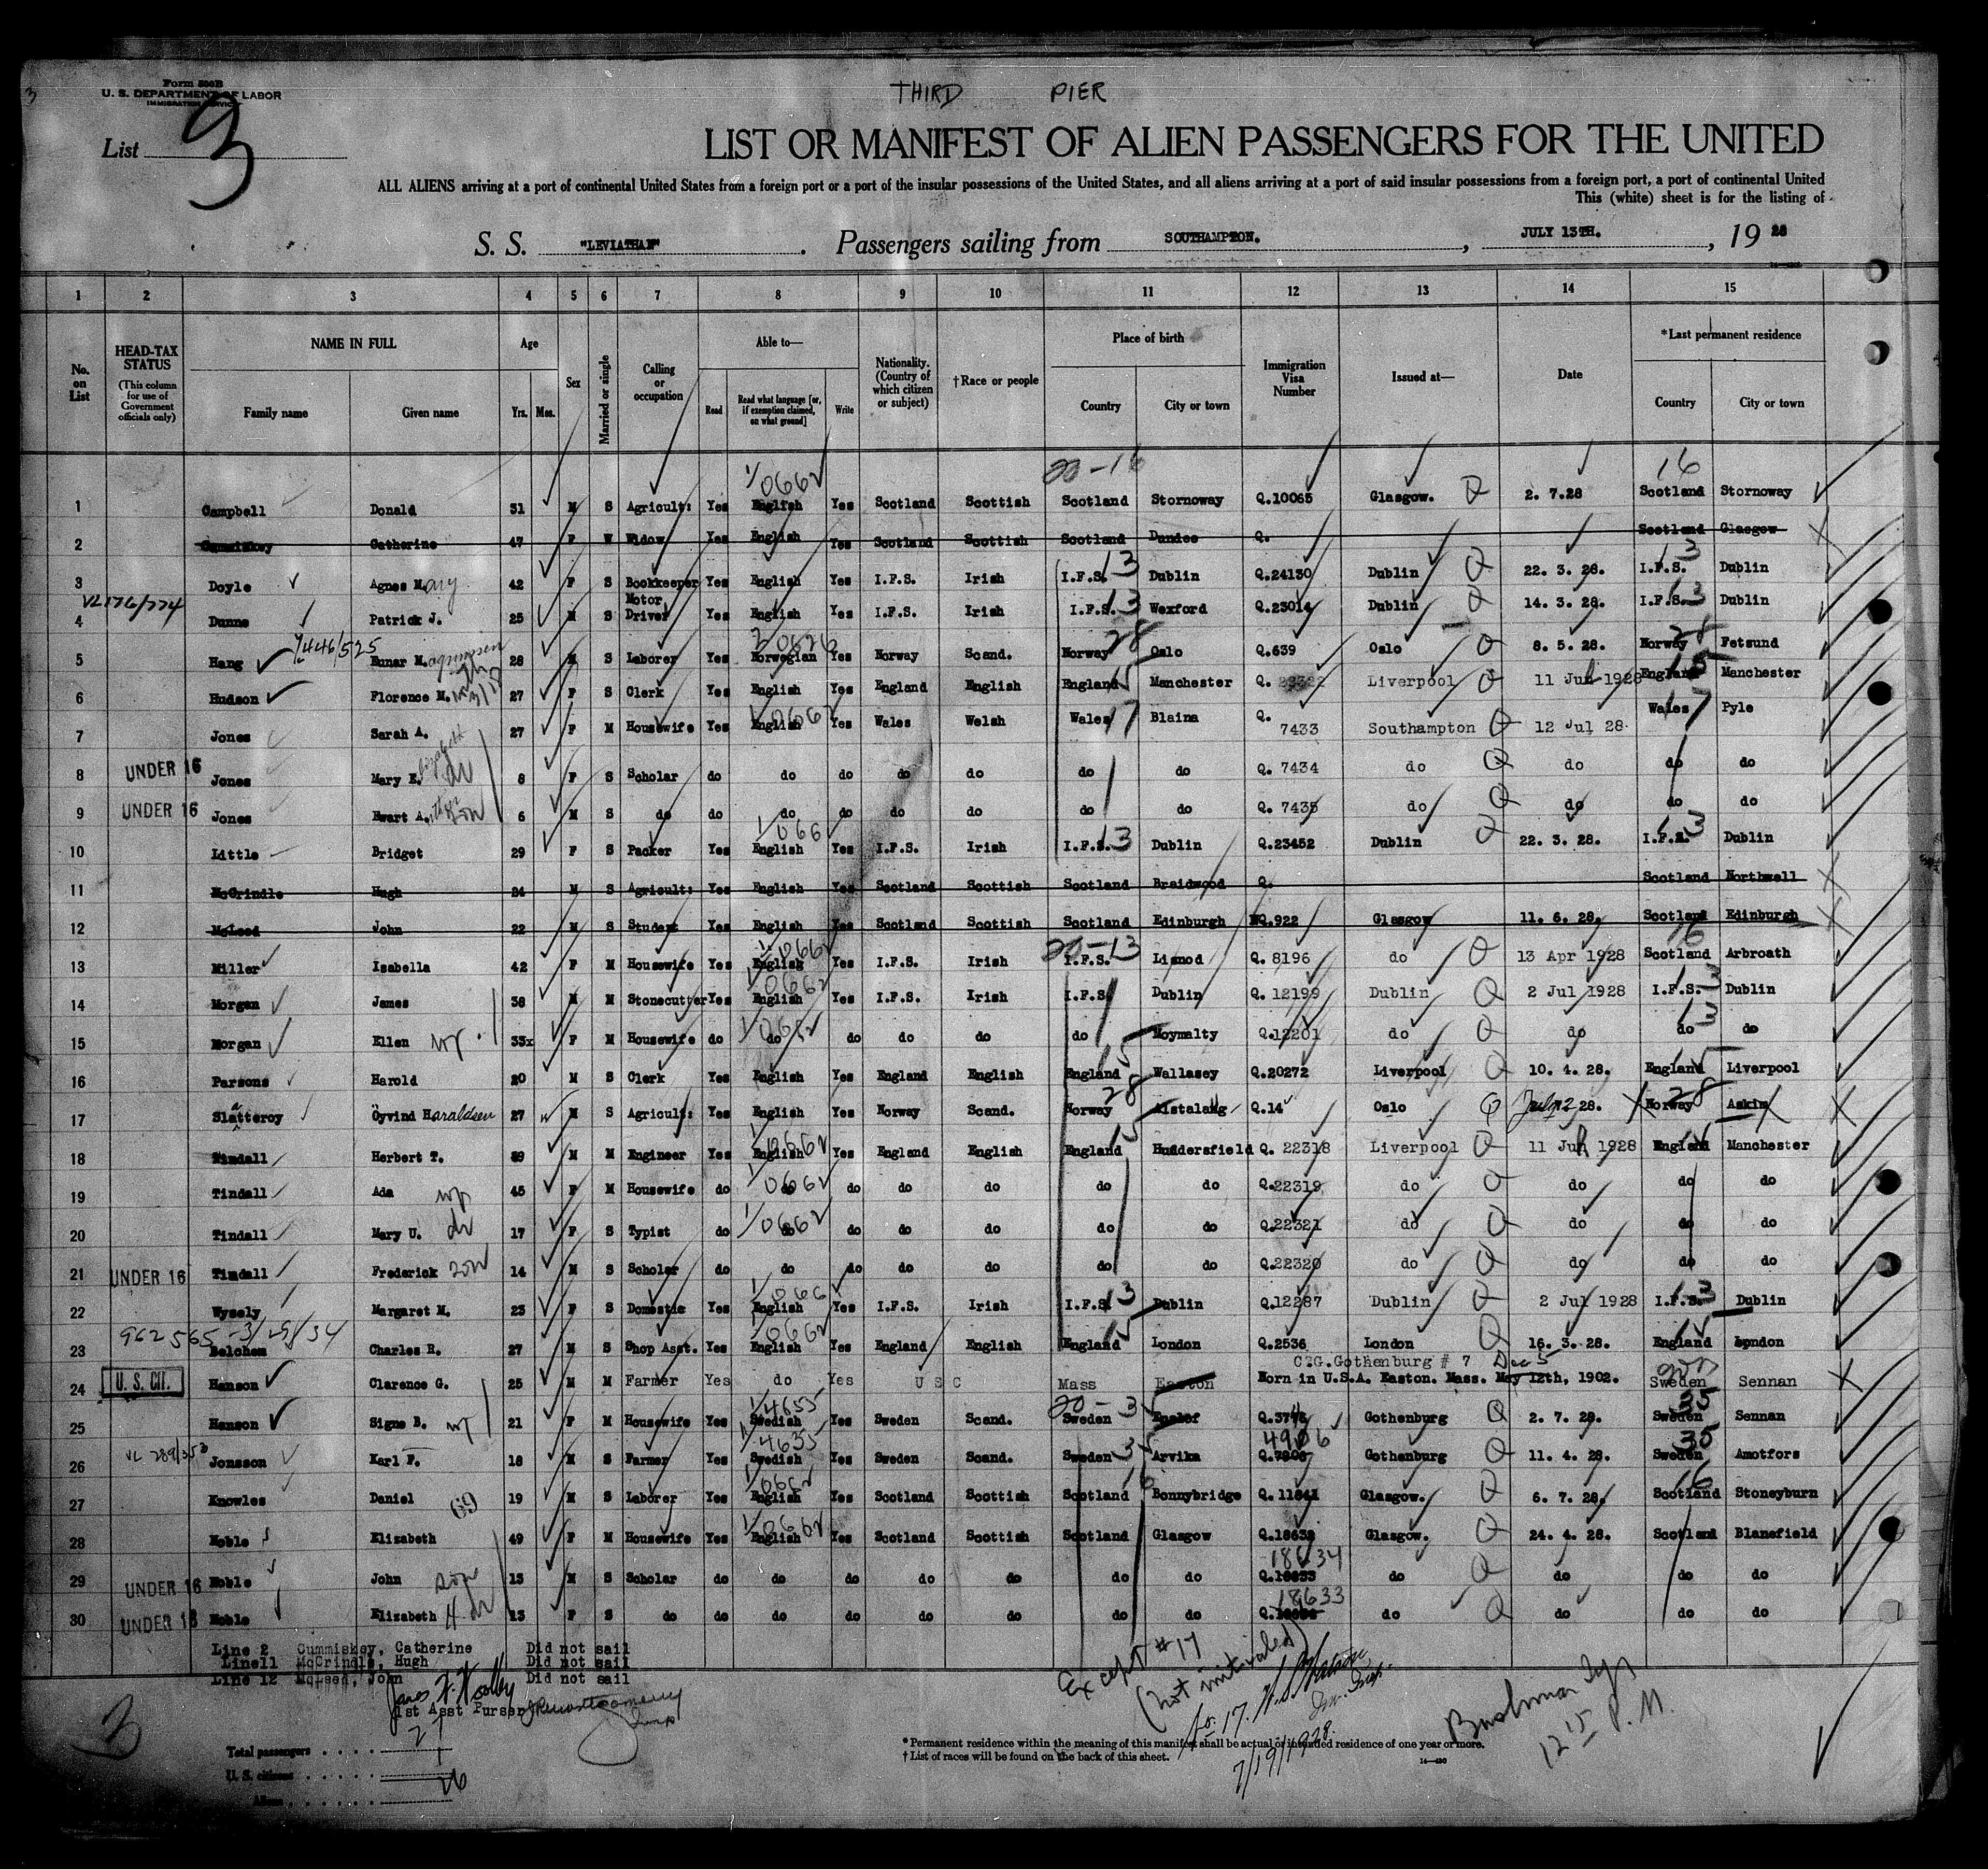 THIRD PIER
Form 500B
U. S. DEPARTMENT OF LABOR
IMMIGRATION SERVICE
List 3
LIST OR MANIFEST OF ALIEN PASSENGERS FOR THE UNITED
ALL ALIENS arriving at a port of continental United States from a foreign port or a port of the insular possessions of the United States, and all aliens arriving at a port of said insular possessions from a foreign port, a port of continental United
This (white) sheet is for the listing of
S. S. "LEVIATHAN". Passengers sailing from SOUTHAMPTON., JULY 13TH., 19 28
1 2 3 4 5 6 7 8 9 10 11 12 13 14 15
No. on List
HEAD-TAX STATUS (This column for use of Government officials only)
NAME IN FULL Family name Given name
Age Yrs. Mos.
Sex
Married or single
Calling or occupation
Able to— Read Read what language [or, if exemption claimed, on what ground] Write
Nationality. (Country of which citizen or subject)
†Race or people
Place of birth Country City or town
Immigration Visa Number
Issued at—
Date
*Last permanent residence Country City or town
1 Campbell Donald 31 M S Agricult: Yes English Yes Scotland Scottish Scotland Stornoway Q.10065 Glasgow. Q 2. 7.28 Scotland Stornoway
2 Cummiskey Catherine 47 F W Widow Yes English Yes Scotland Scottish Scotland Dundee Q. Scotland Glasgow
3 Doyle Agnes Mary 42 F S Bookkeeper Yes English Yes I.F.S. Irish I.F.S. 13 Dublin Q.24130 Dublin Q 22. 3. 28. I.F.S. 13 Dublin
4 Dunne Patrick J. 25 M S Motor Driver Yes English Yes I.F.S. Irish I.F.S. 13 Wexford Q.23014 Dublin Q 14. 3. 28. I.F.S. 13 Dublin
5 Hang Gunar Magnussen 28 M S Laborer Yes Norwegian Yes Norway Scand. Norway 28 Oslo Q.639 Oslo Q 8. 5. 28. Norway 28 Fetsund
6 Hudson Florence M. 27 F S Clerk Yes English Yes England English England 15 Manchester Q. 22322 Liverpool Q 11 Jul 1928 England 15 Manchester
7 Jones Sarah A. 27 F M Housewife Yes English Yes Wales Welsh Wales 17 Blaina Q. 7433 Southampton Q 12 Jul 28 Wales 17 Pyle
8 UNDER 16 Jones Mary E. 8 F S Scholar do do do do do do do Q. 7434 do Q do do do
9 UNDER 16 Jones Ewart A. 6 M S do do do do do do do do Q. 7435 do Q do do do
10 Little Bridget 29 F S Packer Yes English Yes I.F.S. Irish I.F.S. 13 Dublin Q.23452 Dublin Q 22. 3. 28. I.F.S. 13 Dublin
11 McGrindle Hugh 24 M S Agricult: Yes English Yes Scotland Scottish Scotland Braidwood Q. Scotland Northwell
12 McLeod John 22 M S Student Yes English Yes Scotland Scottish Scotland Edinburgh NQ.922 Glasgow 11. 6. 28. Scotland Edinburgh
13 Miller Isabella 42 F M Housewife Yes English Yes I.F.S. Irish I.F.S. 13 Q. 8196 do Q 13 Apr 1928 Scotland 16 Arbroath
14 Morgan James 38 M M Stonecutter Yes English Yes I.F.S. Irish I.F.S. Dublin Q. 12199 Dublin Q 2 Jul 1928 I.F.S. Dublin
15 Morgan Ellen wf. 33x F M Housewife do do do do do do Moymalty Q.12201 do Q do do do
16 Parsons Harold 20 M S Clerk Yes English Yes England English England 15 Wallasey Q.20272 Liverpool Q 10. 4. 28. England 15 Liverpool
17 Slatteroy Öyvind Haraldsen 27 M S Agricult: Yes English Yes Norway Scand. Norway 28 Q.14 Oslo Q July 12 28. Norway 28 Askim
18 Tindall Herbert T. 49 M M Engineer Yes English Yes England English England 15 Huddersfield Q. 22318 Liverpool Q 11 Jul 1928 England 15 Manchester
19 Tindall Ada wf 45 F M Housewife do do do do do do do Q.22319 do Q do do do
20 Tindall Mary U. dr 17 F S Typist do do do do do do do Q.22321 do Q do do do
21 UNDER 16 Tindall Frederick son 14 M S Scholar do do do do do do do Q.22320 do Q do do do
22 Wysely Margaret M. 23 F S Domestic Yes English Yes I.F.S. Irish I.F.S. 13 Dublin Q.12287 Dublin Q 2 Jul 1928 I.F.S. 13 Dublin
962565 - 3/29/34
23 Belchem Charles R. 27 M S Shop Asst. Yes English Yes England English England 15 London Q.2536 London Q 16. 3. 28. England 15 London
C.G.Gothenburg # 7 Dec 5
24 U. S. CIT. Hanson Clarence G. 25 M M Farmer Yes do Yes U S C Mass Easton Born in U.S.A. Easton. Mass. May 12th, 1902. Sweden Sennan
25 Hanson Signe B. wf 21 F M Housewife Yes Swedish Yes Sweden Scand. Sweden Q.3776 Gothenburg Q 2. 7. 28. Sweden 35 Sennan
26 Jonsson Karl F. 18 M S Farmer Yes Swedish Yes Sweden Scand. Sweden 35 Arvika 4906 Gothenburg Q 11. 4. 28. Sweden 35 Amotfors
27 Knowles Daniel 19 M S Laborer Yes English Yes Scotland Scottish Scotland 16 Bonnybridge Q. 11841 Glasgow. Q 6. 7. 28. Scotland 16 Stoneyburn
28 Noble Elizabeth 49 F M Housewife Yes English Yes Scotland Scottish Scotland Glasgow Q.18632 Glasgow. Q 24. 4. 28. Scotland Blanefield
29 UNDER 16 Noble John son 13 M S Scholar do do do do do do do 18634 do Q do do do
30 UNDER 16 Noble Elizabeth H. dr 13 F S do do do do do do do do 18633 do Q do do do
Line 2 Cummiskey, Catherine Did not sail
Line11 McCrindle, Hugh Did not sail
Line 12 McLeod, John Did not sail
1st Asst Purser
Except #17
7/19/1928.
12 15 P.M.
Total passengers 27
U. S. citizens 1
Aliens 26
* Permanent residence within the meaning of this manifest shall be actual or intended residence of one year or more.
† List of races will be found on the back of this sheet.